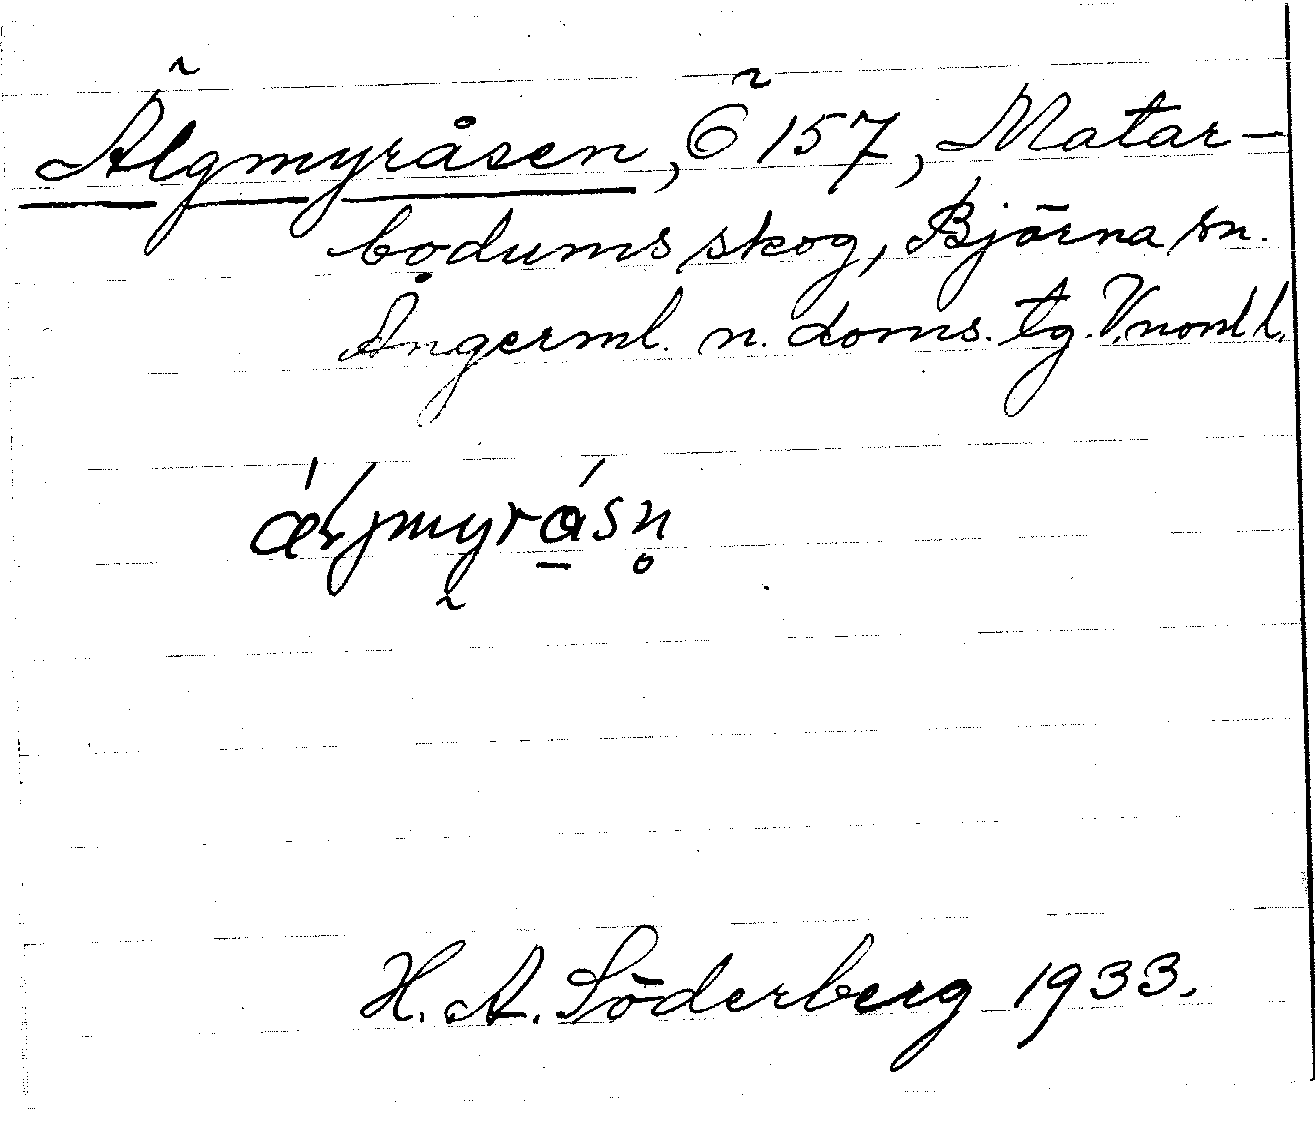 Älgmyråsen, Ö 157, Matar-
bodums skog, Björna sn.
Ångerml. n. doms. tg. V.norrl l.
H. A. Söderberg 1933.